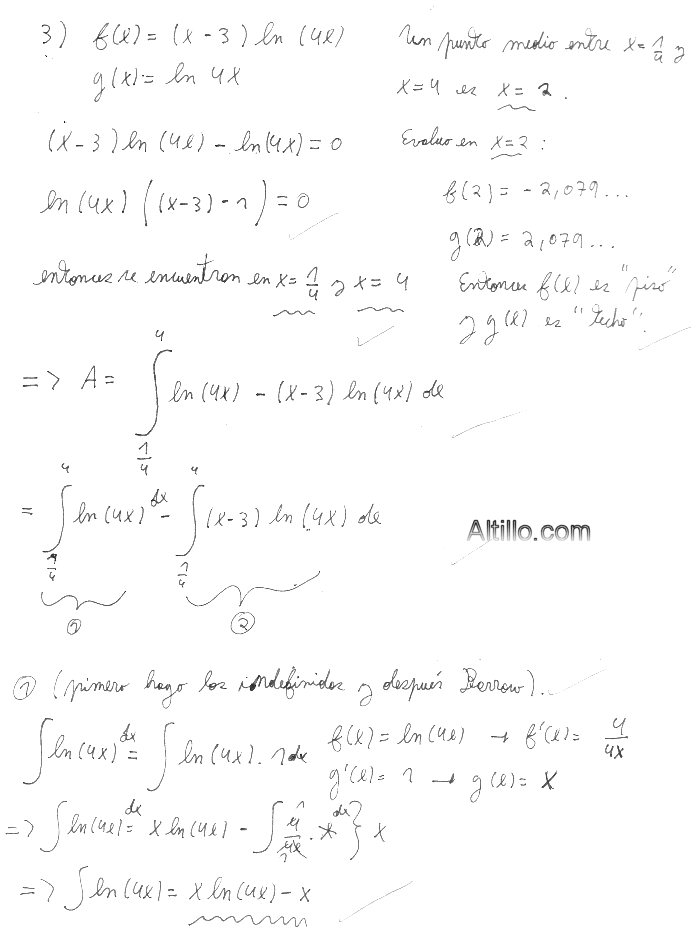 3) f(x) = (x-3) ln (4x)
g(x) = ln 4x
(x-3) ln (4x) - ln(4x) = 0
ln (4x) ((x-3) - 1) = 0
entonces se encuentran en x = 1/4 y x = 4
Un punto medio entre x = 1/4 y
x = 4 es x = 2.
Evaluo en x = 2 :
f(2) = -2,079...
g(2) = 2,079...
Entonces f(x) es "piso"
y g(x) es "techo".
=> A = ∫_{1/4}^{4} ln (4x) - (x-3) ln (4x) dx
= ∫_{1/4}^{4} ln (4x) dx - ∫_{1/4}^{4} (x-3) ln (4x) dx
① ②
Altillo.com
① (primero hago las indefinidas y después Barrow).
∫ ln (4x) dx = ∫ ln (4x) . 1 dx f(x) = ln (4x) → f'(x) = 4/4x
g'(x) = 1 → g(x) = x
=> ∫ ln (4x) dx = x ln (4x) - ∫ 4/4x . x dx } x
=> ∫ ln (4x) = x ln (4x) - x